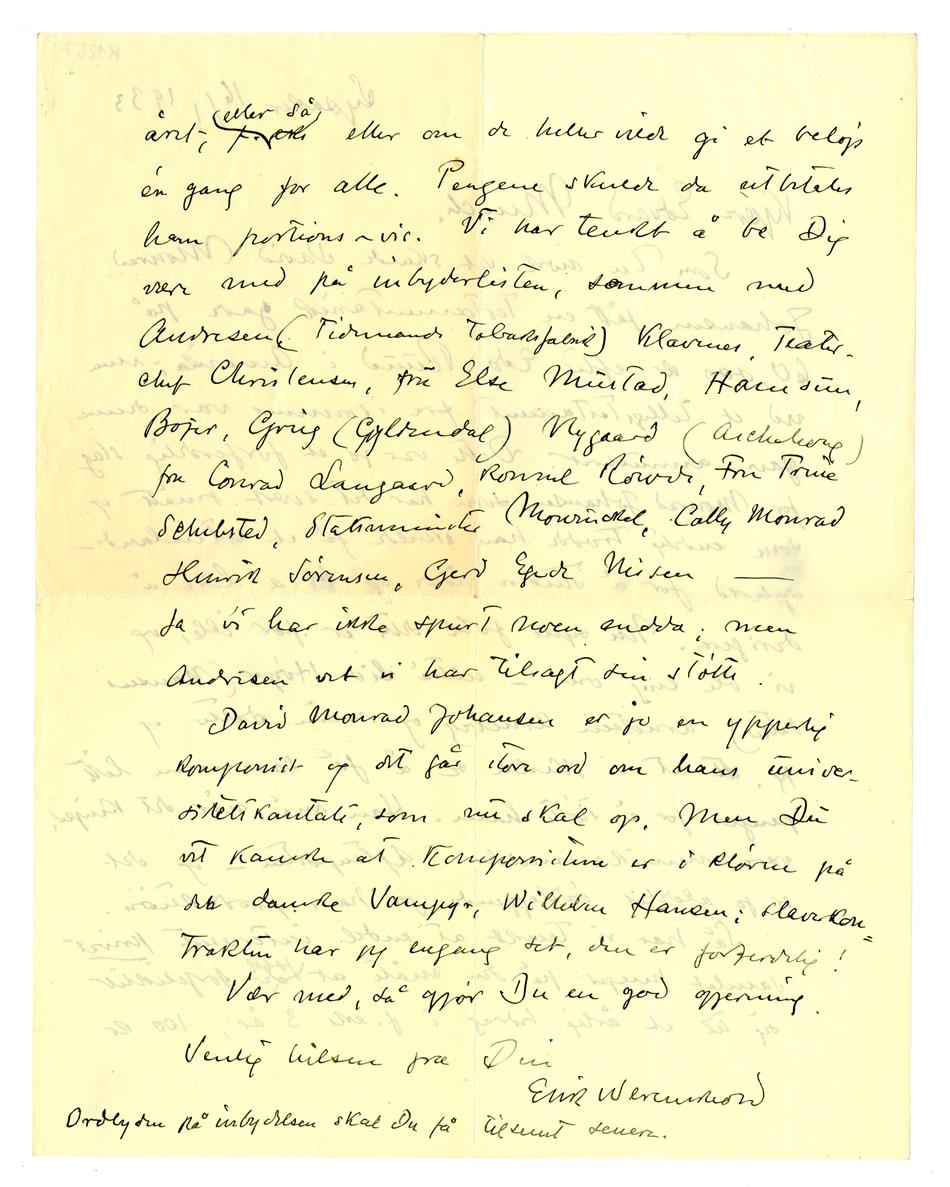 året, (eller så)
eller om de heller vilde gi et beløp
én gang for alle. Pengene skulde da utbetales
ham portions-vis. Vi har tenkt å be Dig
være med på inbyderlisten, sammen med
Andresen (Tidemands Tobaksfabrik) Klaveness, Teater-
chef Christensen, fru Else Mustad, Hamsun,
Bojer, Grieg (Gyldendal) Nygaard (Aschehoug)
fru Conrad Langaard, konsul Röwde, Fru Trine
Schibsted, Statsminister Mowinckel, Cally Monrad
Henrik Sørensen, Gerd Egede Nissen —
Ja vi har ikke spurt noen endda; men
Andresen vet vi har tilsagt sin støtte.
David Monrad Johansen er jo en ypperlig
komponist og det går store ord om hans univer-
sitetskantate, som nu skal op. Men Du
vet kanske at Komponisten er i klørne på
den danske Vampyr, Wilhelm Hansen; slavekon=
trakten har jeg engang set, den er forferdelig!
Vær med, så gjør Du en god gjerning.
Venlig hilsen fra Din
Erik Werenskiold
Ordlyden på inbydelsen skal Du få tilsendt senere.